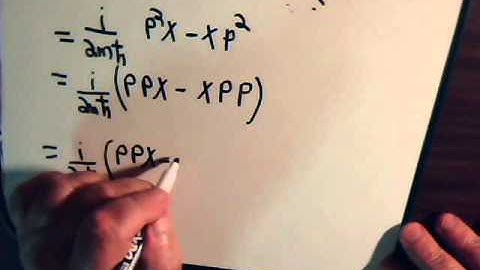 = i/2mħ p²x - xp²
= i/2mħ (ppx - xpp)
= i/2mħ (ppx -